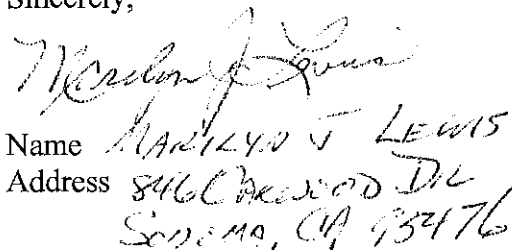 Sincerely,
Marilyn J Lewis
Name MARILYN J LEWIS
Address 846 OAKWOOD DR
SONOMA, CA 95476